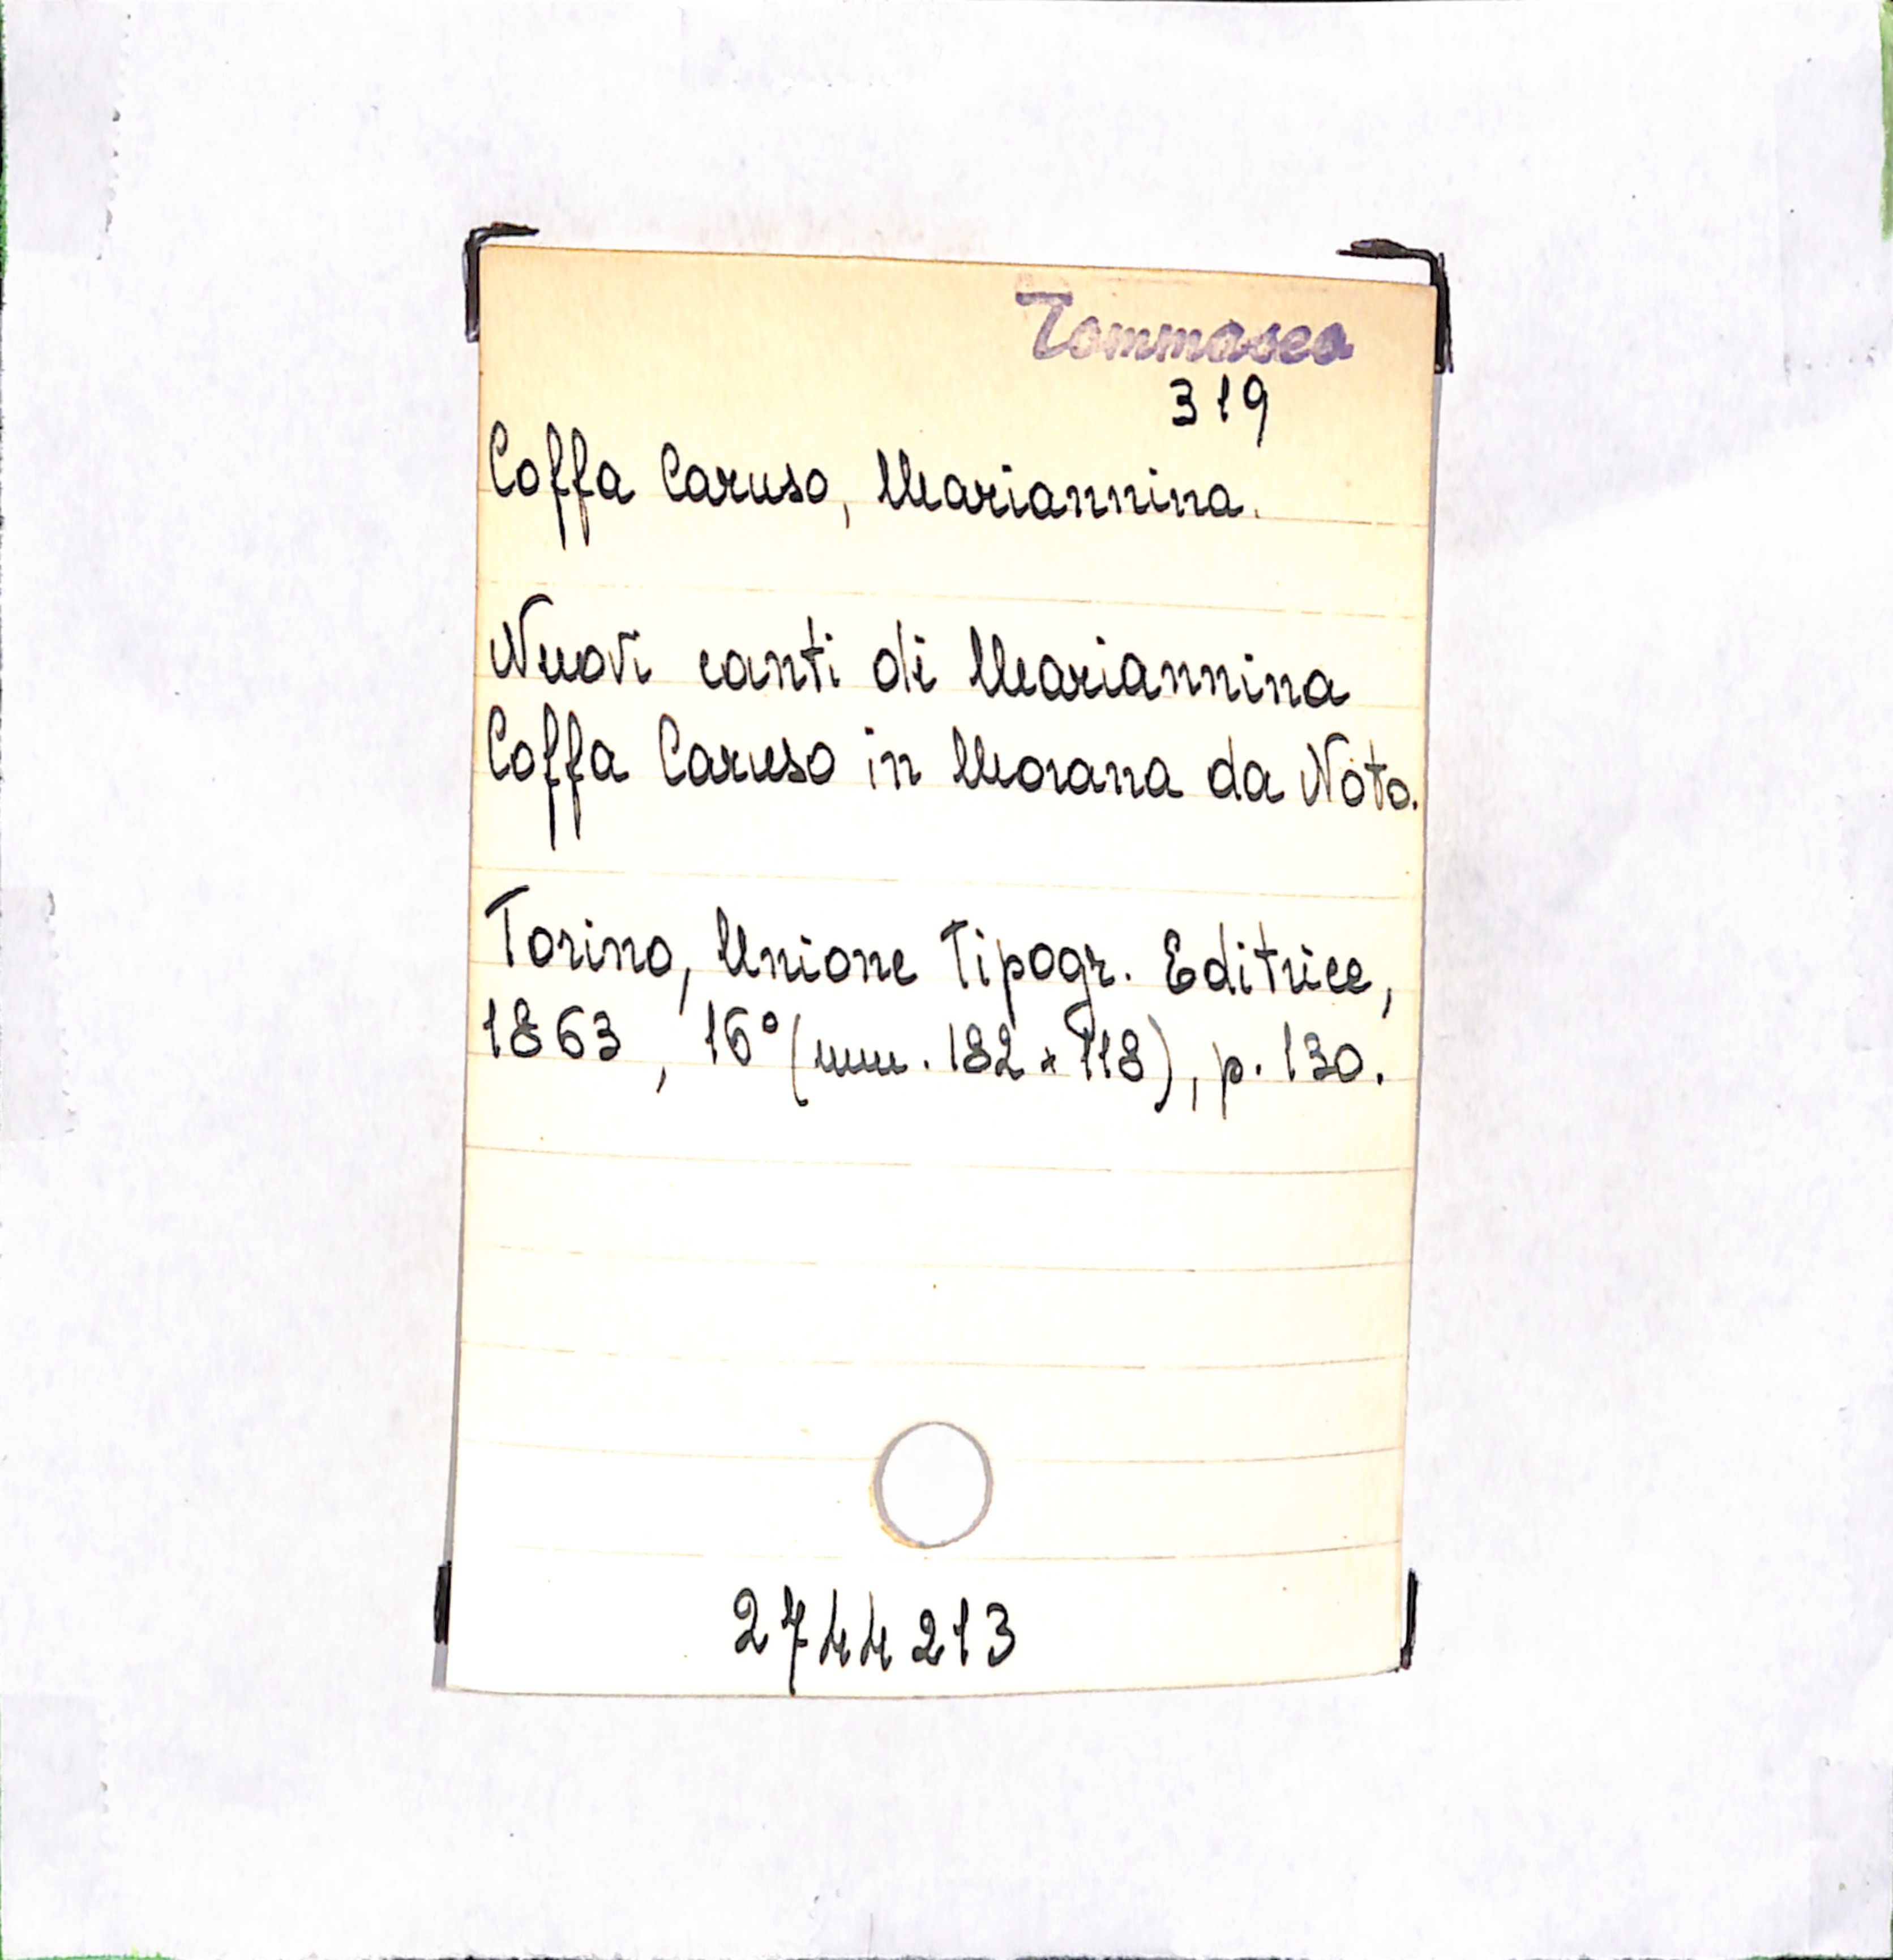 Tommaseo
319
Coffa Caruso, Mariannina.
Nuovi canti di Mariannina
Coffa Caruso in Morana da Noto.
Torino, Unione Tipogr. Editrice,
1863, 16° (mm. 182 x 118), p. 130.
2744213